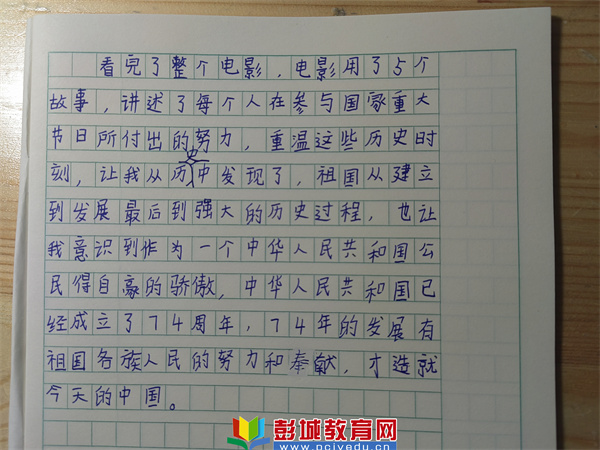 看完了整个电影，电影用了5个
故事，讲述了每个人在参与国家重大
节日所付出的努力，重温这些历史时
刻，让我从历史中发现了，祖国从建立
到发展最后到强大的历史过程，也让
我意识到作为一个中华人民共和国公
民得自豪的骄傲，中华人民共和国已
经成立了74周年，74年的发展有
祖国各族人民的努力和奉献，才造就
今天的中国。
彭城教育网
www.pcjyedu.cn